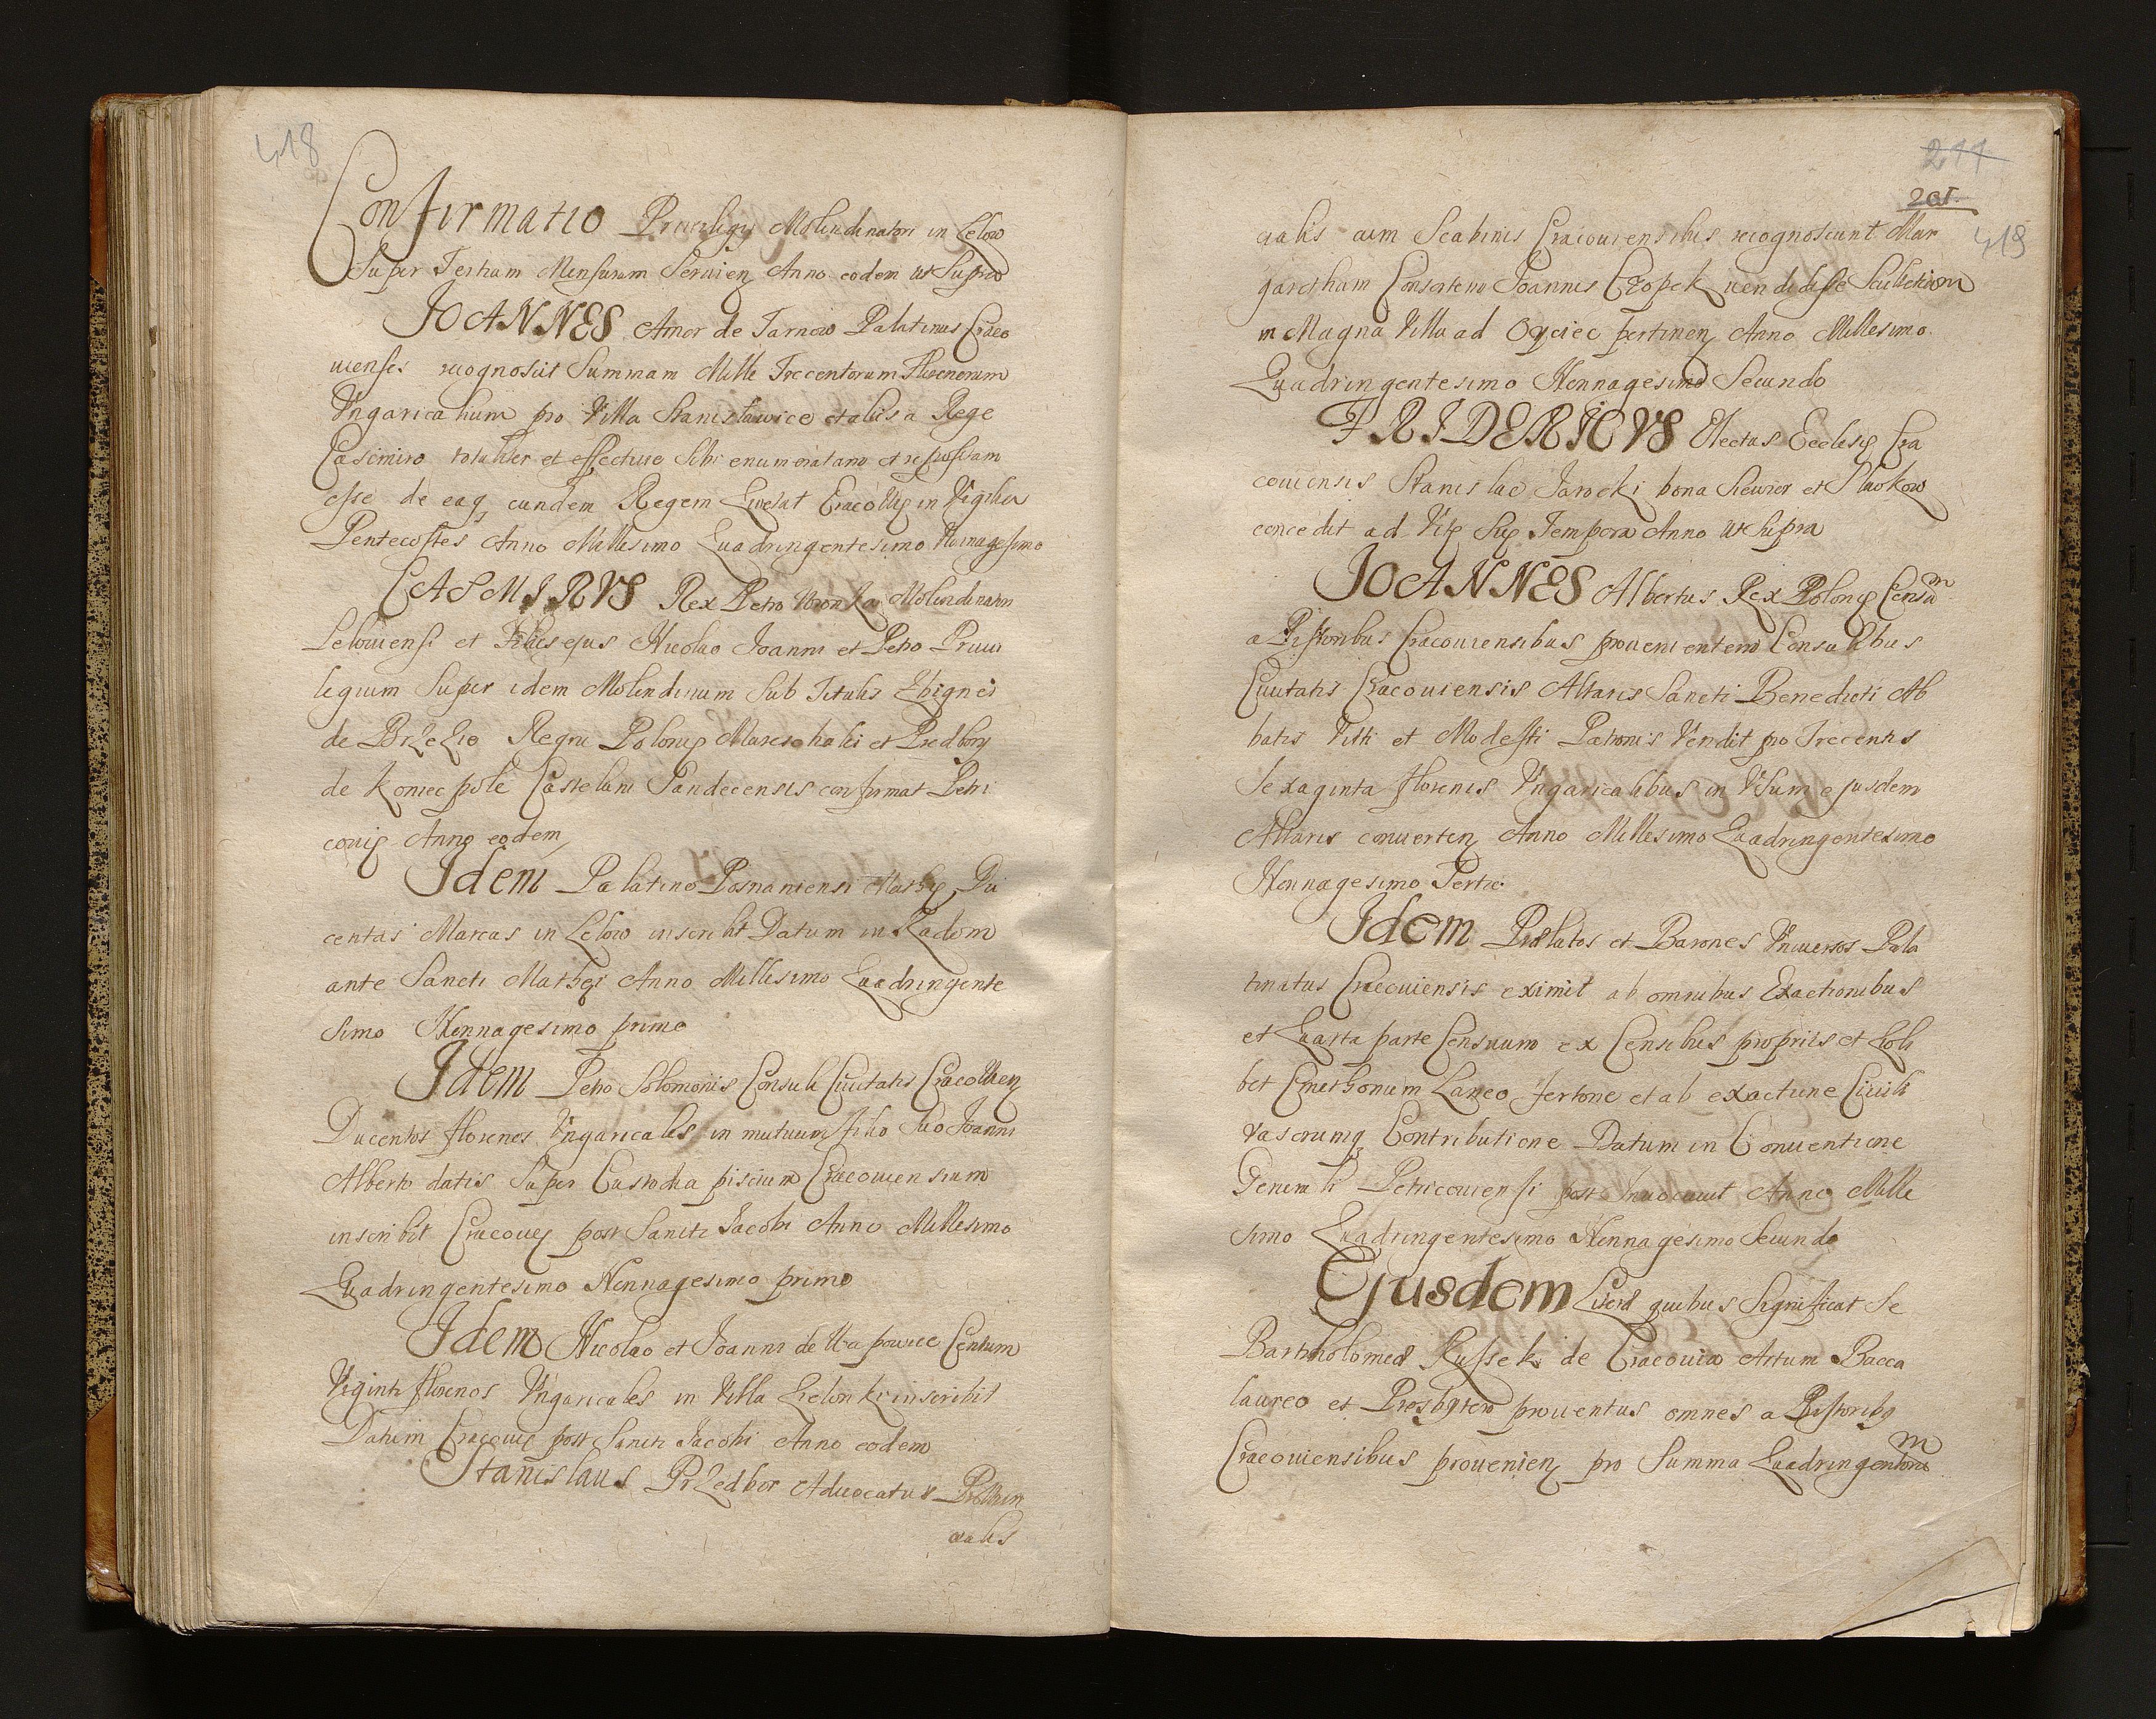 418
Confirmatio Privilegy Molendinatori in Lelow
Super Tertiam Mensuram Servien Anno eodem ut Supra
JOANNES Amor de Tarnow Palatinus Craco
uiensis recognoscit Summam Mille Trecentorum Florenorum
Vngaricalium pro Villa Stanisławice et aliis a Rege
Casimiro totaliter et effective Sibi enumeratam et
esse de eaq eundem Regem Quietat Cracouiȩ in Vigilia
Pentecostes Anno Millesimo Quadringentesimo Nonagesimo
CASMIRVS Rex Petro Wronka Molendinatori
Lelouiensi et Filiis ejus Nicolao Joanni et Petro Priui
legium Super idem Molendinum Sub Titulis Zbignei
de BrzeZio Regni Poloniȩ Mareschalci et Predbory
de koniecpole Castelani Sandecensis confirmat Petri
couiȩ Anno eodem
Idem Palatino Posnaniensi Mathȩ Du
centas Marcas in Lelow inscribit Datum in Radom
ante Sancti Mathȩi Anno Millesimo Quadringente
simo Nonnagesimo primo
Idem Petro Solomonis Consuli Ciuitatis Cracouien
Ducentos florenos Vngaricales in mutuum filio Suo Joanni
Alberto datis Super Custodia piscium Cracouiensium
inscribit Cracouiȩ post Sancti Jacobi Anno Millesimo
Quadringentesimo Nonnagesimo primo
Idem Nicolao et Joanni de Centum
Viginti florenos Vngaricales in Villa Zielonki inscribit
Datum Cracouiȩ post Sancti Jacobi Anno eodem
Stanislaus PrZedbor Aduocatus Prouin
cialis
211
201.
419
cialis cum Scabinis Cracouiensibus recognoscunt Mar
garetham Consortem Joannis Czopek uendidisse Scultetiam
in Magna Villa ad Oyciec pertinen Anno Millesimo
Quadringentesimo Nonnagesimo Secundo
FRIDERICVS Electus Ecclesiȩ Cra
couiensis Stanislao Jarocki bona Siewior et Sławkow
concedit ad Vitȩ Suȩ Tempora Anno ut Supra
JOANNES Albertus Rex Poloniȩ Censum
a Pistoribus Cracouiensibus prouenientem Consulibus
Ciuitatis Cracouiensis Altaris Sancti Benedicti Ab
batis Viti et Modesti Patronis Vendit pro Trecentis
Sexaginta florenis Vngaricalibus in Vsum ejusdem
Altaris conuerten Anno Millesimo Quadringentesimo
Nonnagesimo Tertio
Idem Prælatos et Barones Vniuersos Pala
tinatus Cracouiensis eximit ab omnibus Exactionibus
et Quarta parte Censuum ex Censibus propriis et Quoli
bet Cmethonum Laneo fertone et ab exactione Ciuili
vasorumq Contributione Datum in Conuentione
Generali Petricouiensi post Inuocauit Anno Mille
simo Quadringentesimo Nonnagesimo Secundo
Ejusdem Literæ quibus Significat Se
Bartholomeo Russek de Cracouia Artium Bacca
laureo et Presbytero prouentus omnes a Pistoribq
Cracouiensibus prouenien pro Summa Quadringentorum